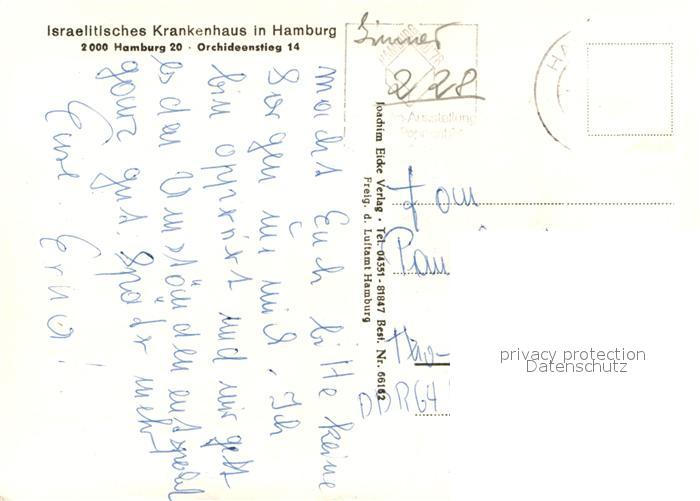 Israelitisches Krankenhaus in Hamburg
2000 Hamburg 20 · Orchideenstieg 14
Zimmer
2/28
macht Euch bitte keine
Sorgen um mich. Ich
bin operiert und mir geht
es den Umständen entspr
ganz gut. Später mehr!
Eure Erna!
Joachim Eicke Verlag · Tel. 04351 - 81847 Best. Nr. 66162
Freig. d. Luftamt Hamburg
Fam
Pau
DDR 64
HA
privacy protection
Datenschutz